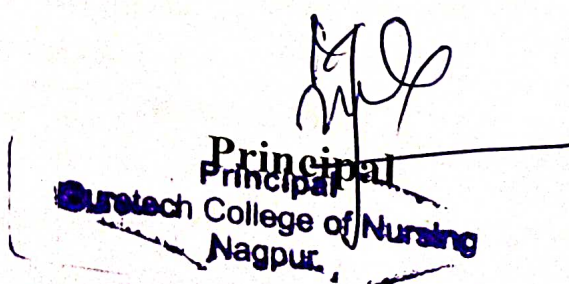 Principal
Principal
College of Nursing
Nagpur.